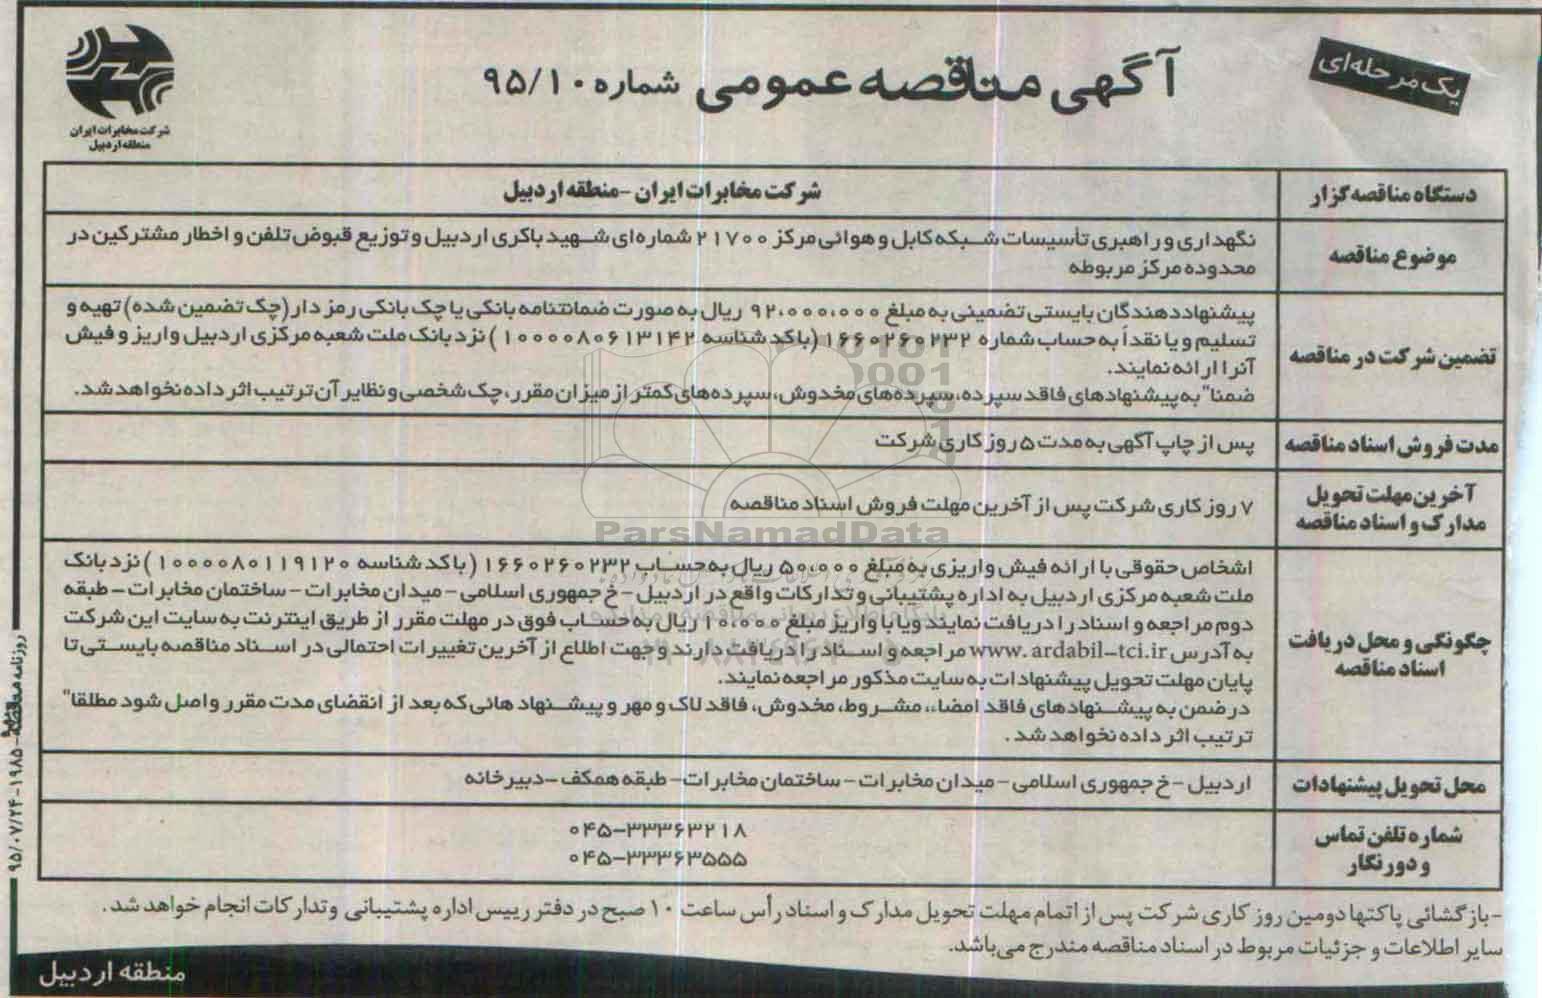 یک مرحله‌ای
آگهی مناقصه عمومی شماره ۹۵/۱۰
شرکت مخابرات ایران
منطقه اردبیل
دستگاه مناقصه گزار
شرکت مخابرات ایران -منطقه اردبیل
موضوع مناقصه
نگهداری و راهبری تأسیسات شبکه کابل و هوائی مرکز ۲۱۷۰۰ شماره‌ای شهید باکری اردبیل و توزیع قبوض تلفن و اخطار مشترکین در
محدوده مرکز مربوطه
تضمین شرکت در مناقصه
پیشنهاددهندگان بایستی تضمینی به مبلغ ۹۲،۰۰۰،۰۰۰ ریال به صورت ضمانتنامه بانکی یا چک بانکی رمز دار (چک تضمین شده) تهیه و
تسلیم و یا نقداً به حساب شماره ۱۶۶۰۲۶۰۲۳۲ (با کد شناسه ۱۰۰۰۰۸۰۶۱۳۱۴۲ ) نزد بانک ملت شعبه مرکزی اردبیل واریز و فیش
آنرا ارائه نمایند.
ضمنا" به پیشنهادهای فاقد سپرده، سپرده‌های مخدوش، سپرده‌های کمتر از میزان مقرر، چک شخصی و نظایر آن ترتیب اثر داده نخواهد شد.
مدت فروش اسناد مناقصه
پس از چاپ آگهی به مدت ۵ روز کاری شرکت
آخرین مهلت تحویل
مدارک و اسناد مناقصه
۷ روز کاری شرکت پس از آخرین مهلت فروش اسناد مناقصه
ParsNamadData
چگونگی و محل دریافت
اسناد مناقصه
اشخاص حقوقی با ارائه فیش واریزی به مبلغ ۵۰،۰۰۰ ریال به حساب ۱۶۶۰۲۶۰۲۳۲ (با کد شناسه ۱۰۰۰۰۸۰۱۱۹۱۲۰ ) نزد بانک
ملت شعبه مرکزی اردبیل به اداره پشتیبانی و تدارکات واقع در اردبیل - خ جمهوری اسلامی - میدان مخابرات - ساختمان مخابرات - طبقه
دوم مراجعه و اسناد را دریافت نمایند ویا با واریز مبلغ ۱۰،۰۰۰ ریال به حساب فوق در مهلت مقرر از طریق اینترنت به سایت این شرکت
به آدرس www.ardabil-tci.ir مراجعه و اسناد را دریافت دارند و جهت اطلاع از آخرین تغییرات احتمالی در اسناد مناقصه بایستی تا
پایان مهلت تحویل پیشنهادات به سایت مذکور مراجعه نمایند.
در ضمن به پیشنهادهای فاقد امضاء، مشروط، مخدوش، فاقد لاک و مهر و پیشنهاد هائی که بعد از انقضای مدت مقرر واصل شود مطلقا"
ترتیب اثر داده نخواهد شد.
محل تحویل پیشنهادات
اردبیل - خ جمهوری اسلامی - میدان مخابرات - ساختمان مخابرات - طبقه همکف -دبیرخانه
شماره تلفن تماس
و دورنگار
۰۴۵-۳۳۳۶۳۲۱۸
۰۴۵-۳۳۳۶۳۵۵۵
- بازگشائی پاکتها دومین روز کاری شرکت پس از اتمام مهلت تحویل مدارک و اسناد رأس ساعت ۱۰ صبح در دفتر رییس اداره پشتیبانی و تدارکات انجام خواهد شد.
سایر اطلاعات و جزئیات مربوط در اسناد مناقصه مندرج می‌باشد.
منطقه اردبیل
روزنامه مناقصه - ۱۹۸۵ - ۹۵/۰۷/۲۴